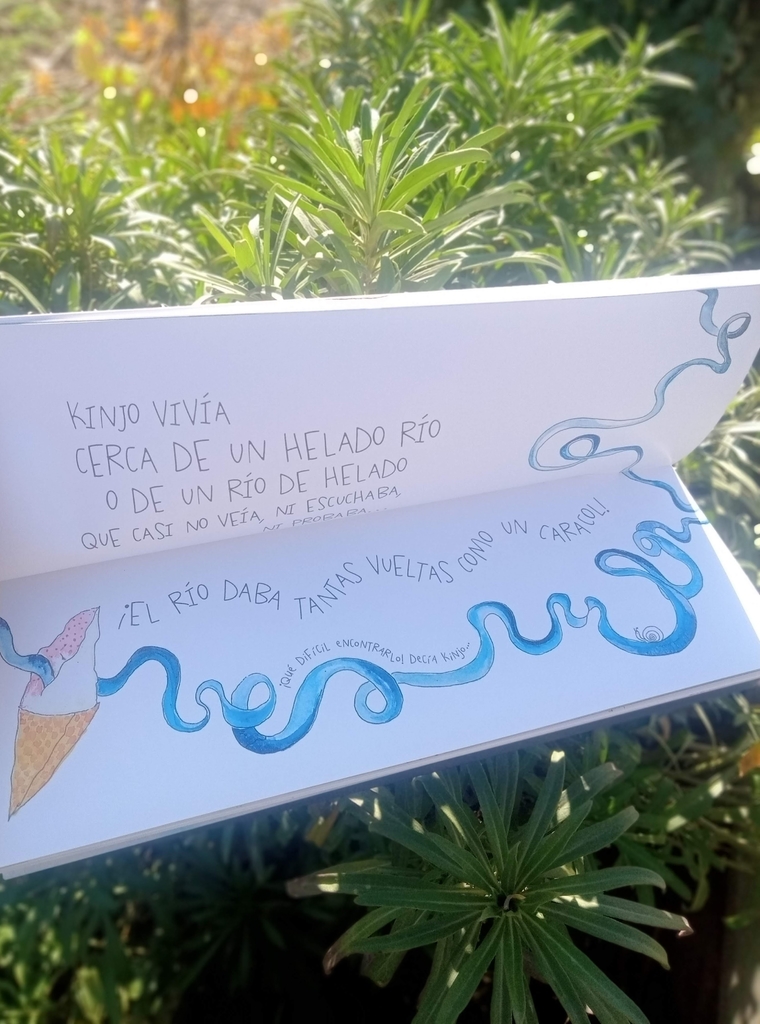 KINJO VIVÍA
CERCA DE UN HELADO RÍO
O DE UN RÍO DE HELADO
QUE CASI NO VEÍA, NI ESCUCHABA,
NI PROBABA...
¡EL RÍO DABA TANTAS VUELTAS COMO UN CARACOL!
¡QUÉ DIFÍCIL ENCONTRARLO! DECÍA KINJO...